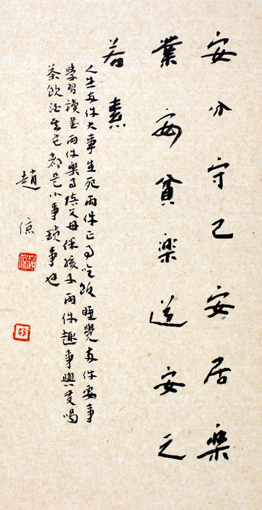 安分守己安居樂
業安貧樂道安之
若素
人生兩件大事生死兩件正事吃飯睡覺兩件要事
學習讀書兩件樂事陪父母伴孩子兩件趣事與友喝
茶飲酒其它都是小事瑣事也
趙